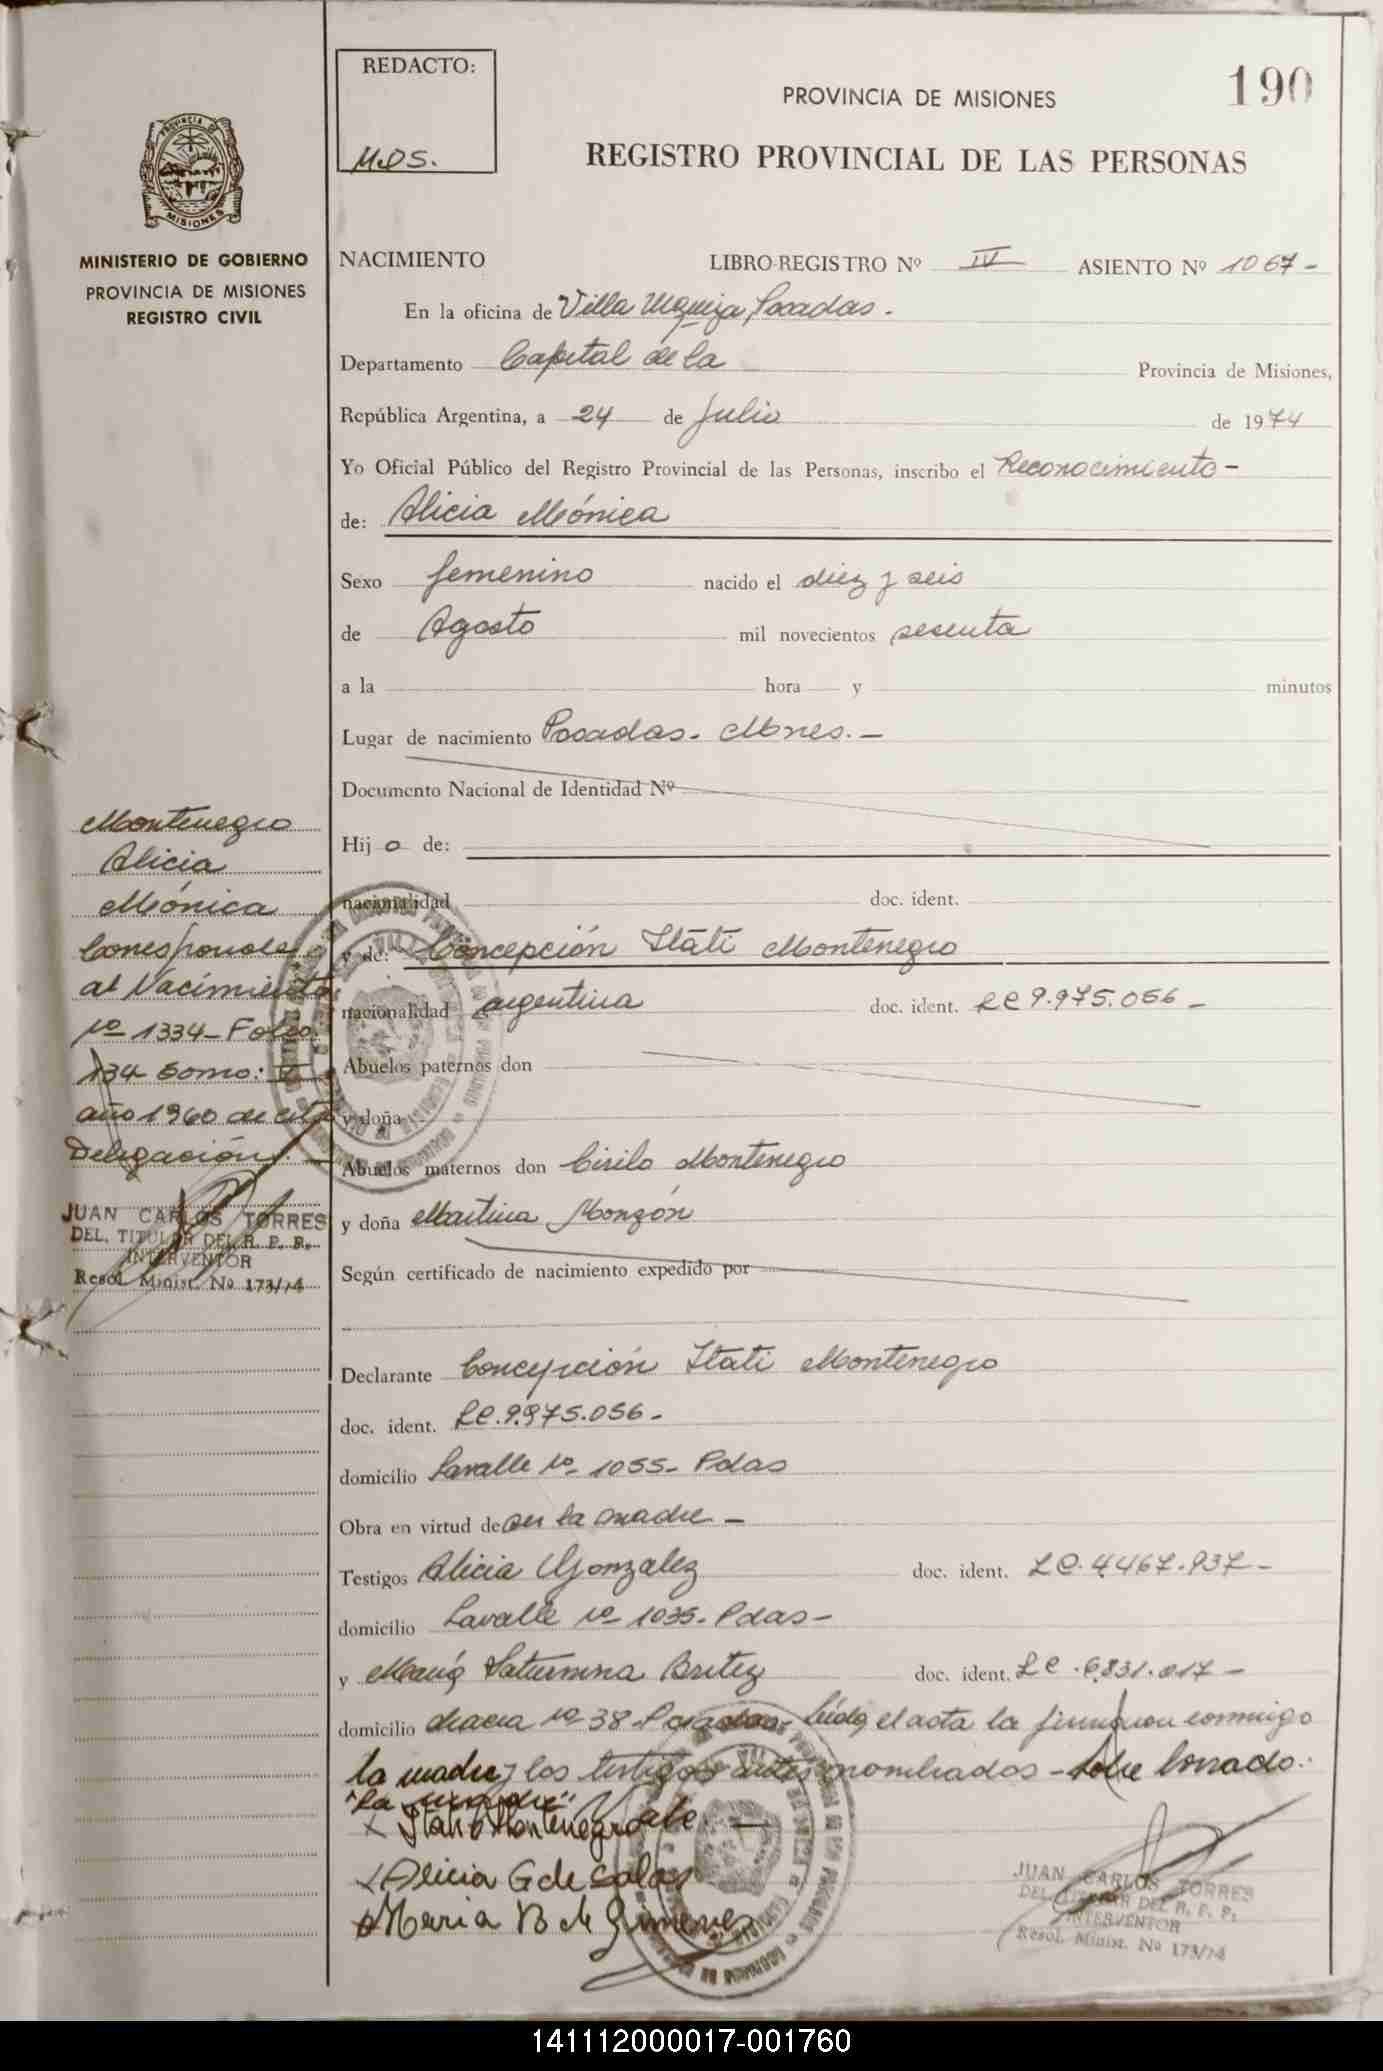 REDACTO:
M.DS.
190
PROVINCIA DE MISIONES
REGISTRO PROVINCIAL DE LAS PERSONAS
PROVINCIA DE
MISIONES
MINISTERIO DE GOBIERNO
PROVINCIA DE MISIONES
REGISTRO CIVIL
NACIMIENTO LIBRO-REGISTRO Nº IV ASIENTO Nº 1067-
En la oficina de Villa Urquiza, Posadas.
Departamento Capital de la Provincia de Misiones,
República Argentina, a 24 de Julio de 1974
Yo Oficial Público del Registro Provincial de las Personas, inscribo el Reconocimiento-
de: Alicia Mónica
Sexo femenino nacido el diez y seis
de Agosto mil novecientos sesenta
a la hora y minutos
Lugar de nacimiento Posadas. Mnes.-
Documento Nacional de Identidad Nº
Hij a de:
nacionalidad doc. ident.
y de: Concepción Itatí Montenegro
nacionalidad argentina doc. ident. LC 9.975.056-
Abuelos paternos don
y doña
Abuelos maternos don Cirilo Montenegro
y doña Martina Monzón
Según certificado de nacimiento expedido por
Declarante Concepción Itatí Montenegro
doc. ident. LC.9.975.056-
domicilio Lavalle Nº 1055- Pdas
Obra en virtud de ser la madre-
Testigos Alicia Gonzalez doc. ident. LC.4467.937-
domicilio Lavalle Nº 1035-Pdas-
y María Saturnina Britez doc. ident. LC.6831.017-
domicilio chacra Nº 38 Posadas. Leída el acta la firman conmigo
la madre y los testigos antes nombrados-sobre borrado:
"la madre" Vale-
x Itati Montenegro
x Alicia G de Salas
x Maria B de Gimenez
Montenegro
Alicia
Mónica
Corresponde
al Nacimiento
Nº 1334-Folio
134 Tomo:
año 1960 de esta
Delegación.-
JUAN CARLOS TORRES
DEL. TITULAR DEL R. P. P.
INTERVENTOR
Resol. Minist. Nº 173/74
JUAN CARLOS TORRES
DEL. TITULAR DEL R. P. P.
INTERVENTOR
Resol. Minist. Nº 173/74
141112000017-001760